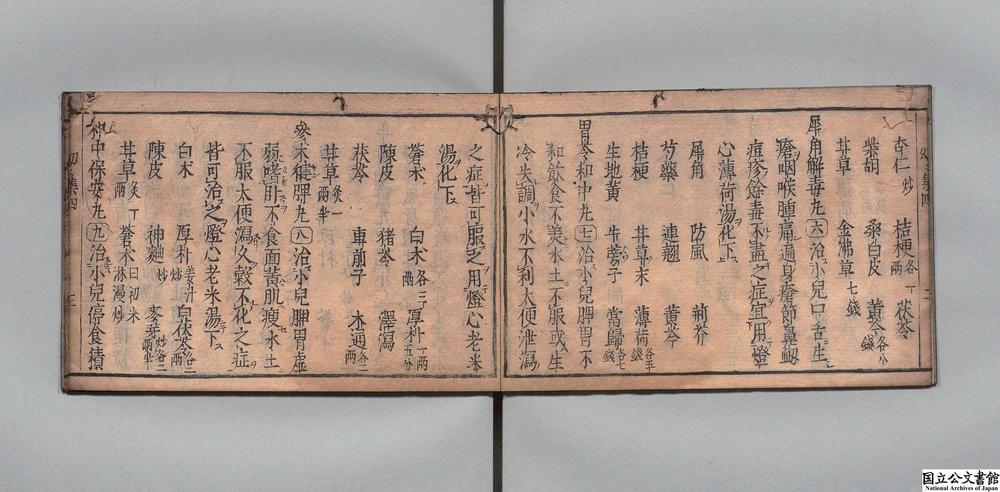 杏仁炒 桔梗各一両 茯苓
柴胡 桑白皮 黄芩各八錢
甘草 金沸草七錢
犀角解毒丸 六 治小兒口舌生
瘡咽喉腫痛遍身瘡節鼻衂
痘疹餘毒不盡之症宜用燈
心薄荷湯化下
犀角 防風 荊芥
芍藥 連翹 黄芩
桔梗 甘草末 薄荷各五錢
生地黄 牛蒡子 當歸各七錢
胃苓和中丸 七 治小兒脾胃不
和飲食不美水土不服或生
冷失調小水不利大便泄瀉
之症皆可服之用燈心老米
湯化下
蒼朮 白朮各三両 厚朴一両五分
陳皮 猪苓 澤瀉
茯苓 車前子 木通各二両
甘草炙一両半
參朮健脾丸 八 治小兒脾胃虚
弱嗜肝不食面黄肌瘦水土
不服大便瀉久穀不化之症
皆可治之燈心老米湯下
白朮 厚朴姜汁炒 白茯苓各二両
陳皮炒 神麯炒 麥芽炒各二両半
甘草炙一両 蒼朮
中保安丸 九 治小兒停食積
初集四
国立公文書館
National Archives of Japan